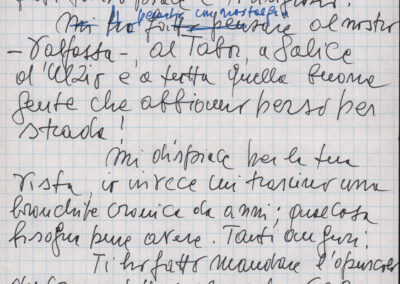 al nostro
– Valfossa –, al Tabor, a Salice
d'Ulzio e a tutta quella buona
gente che abbiamo perso per
strada!
Mi dispiace per la tua
vista, io invece mi trascino una
bronchite cronica da anni; qualcosa
bisogna pure avere. Tanti auguri.
Ti ho fatto mandare l'opuscolo